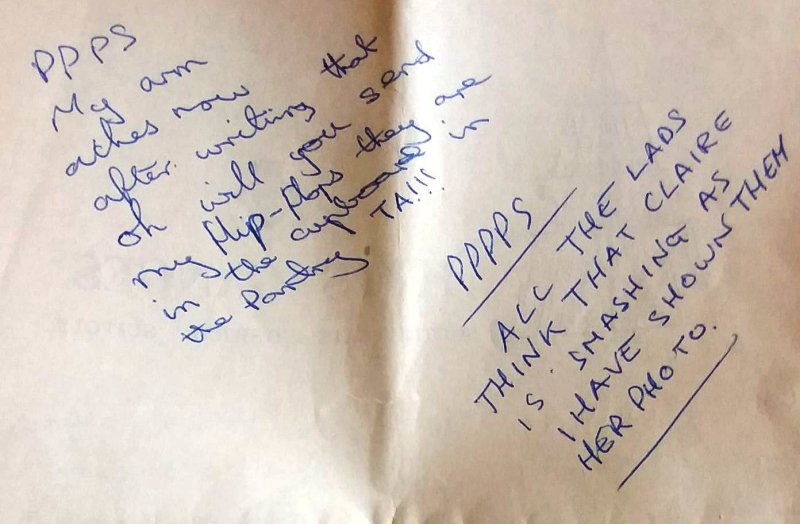 PPPS
My arm
aches now
after writing that
oh will you send
my flip-flops they are
in the cupboard in
the Pantry TA!!!
PPPPS
ALL THE LADS
THINK THAT CLAIRE
IS SMASHING AS
I HAVE SHOWN THEM
HER PHOTO.